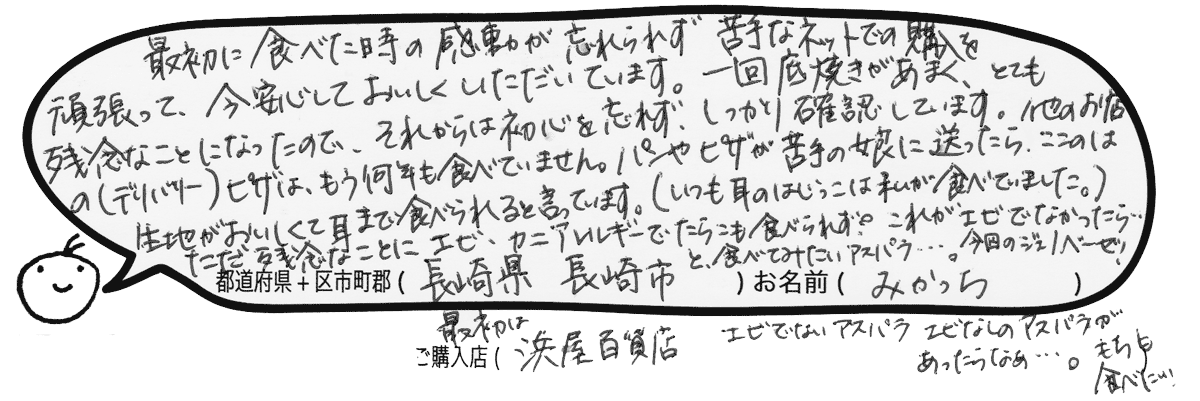 最初に食べた時の感動が忘れられず 苦手なネットでの購入を
頑張って、今安心しておいしくいただいています。一回底焼きがあまく、とても
残念なことになったので、それからは初心を忘れず、しっかり確認しています。他のお店
の(デリバリー)ピザは、もう何年も食べていません。パンやピザが苦手の娘に送ったら、ここのは
生地がおいしくて耳まで食べられると言っています。(いつも耳のはじっこは私が食べていました。)
ただ残念なことにエビ、カニアレルギーでたらこも食べられず。これがエビでなかったら…
と、食べてみたいアスパラ…。今回のジェノベーゼ!
都道府県+区市町郡( 長崎県 長崎市 ) お名前( みかっち )
最初は
ご購入店( 浜屋百貨店
エビでないアスパラ エビなしのアスパラが
あったらなぁ…。もちも
食べたい!